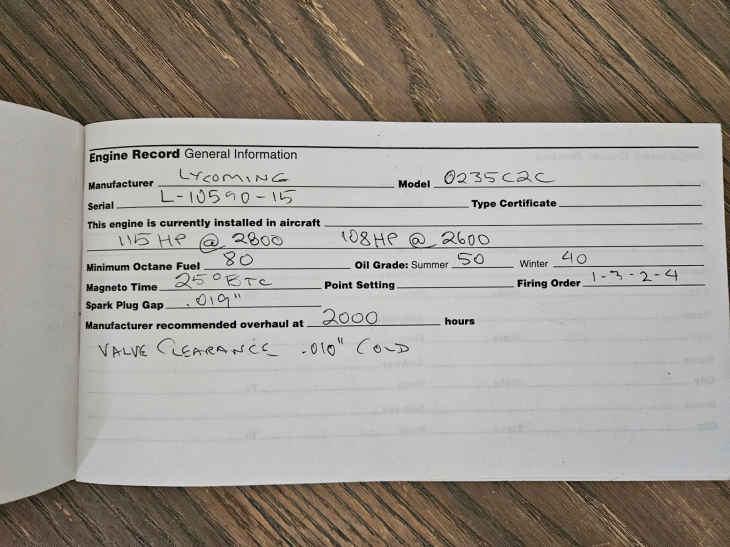 Engine Record General Information
Manufacturer LYCOMING Model O235C2C
Serial L-10590-15 Type Certificate
This engine is currently installed in aircraft
115 HP @ 2800 108 HP @ 2600
Minimum Octane Fuel 80 Oil Grade: Summer 50 Winter 40
Magneto Time 25° BTC Point Setting Firing Order 1-3-2-4
Spark Plug Gap .019"
Manufacturer recommended overhaul at 2000 hours
VALVE CLEARANCE .010" COLD